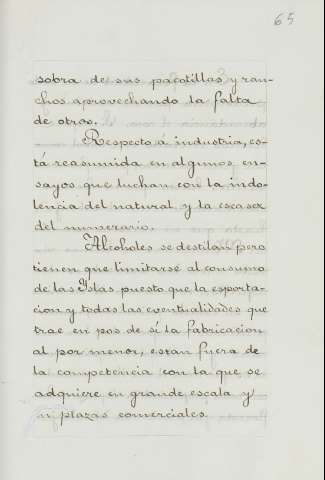 65
sobra de sus pacotillas y ran-
chos aprovechando la falta
de otros.
Respecto á industria, es-
tá reasumida en algunos en-
sayos que luchan con la indo-
lencia del natural y la escasez
del numerario.
Alcoholes se destilan pero
tienen que limitarse al consumo
de las Yslas puesto que la esporta-
cion y todas las eventualidades que
trae en pos de sí la fabricacion
al por menor, estan fuera de
la competencia con la que se
adquiere en grande escala y
en plazas comerciales.